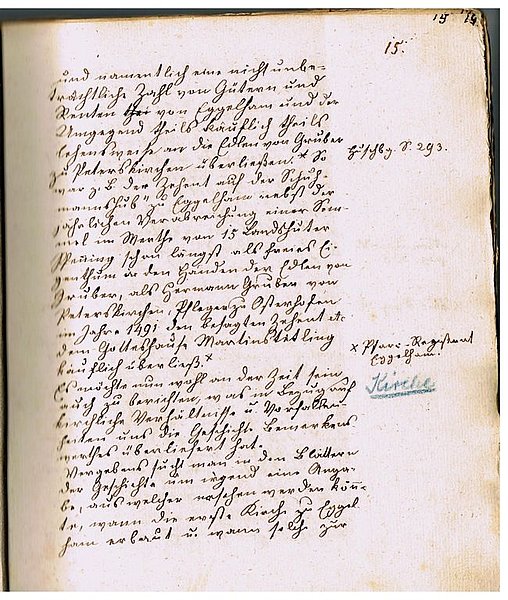 15 19
15.
und namentlich eine nicht unbe-
trächtliche Zahl von Gütern und
Renten von Eggelham und der
Umgegend theils käuflich theils
lehensweise an die Edlen von Gruber
zu Peterskirchen überließen.* So
war z. B. der Zehent auf der Schuh-
mannshub zu Eggelham nebst der
jährlichen Verabreichung einer Sem-
mel im Werthe von 15 Landshuter
Pfenning schon längst als freies Ei-
genthum in den Handen der Edlen von
Gruber, als Hermann Gruber von
Peterskirchen, Pfleger zu Osterhofen
im Jahre 1491 den besagten Zehent etc
dem Gotteshause Martinstetling
käuflich überließ.*
Es möchte nun wohl an der Zeit sein
auch zu berichten, was in Bezug auf
kirchliche Verhältnisse u
uns die Geschichte Bemerkens
werthes überliefert hat.
Vergebens sucht man in den Blättern
der Geschichte um irgend eine Anga-
be, aus welcher ersehen werden kön-
te, wann die erste Kirche zu Eggel
ham erbaut u. wann solche zur
S. 293.
x Pfarr-Registrat
Eggelham.
Kirche